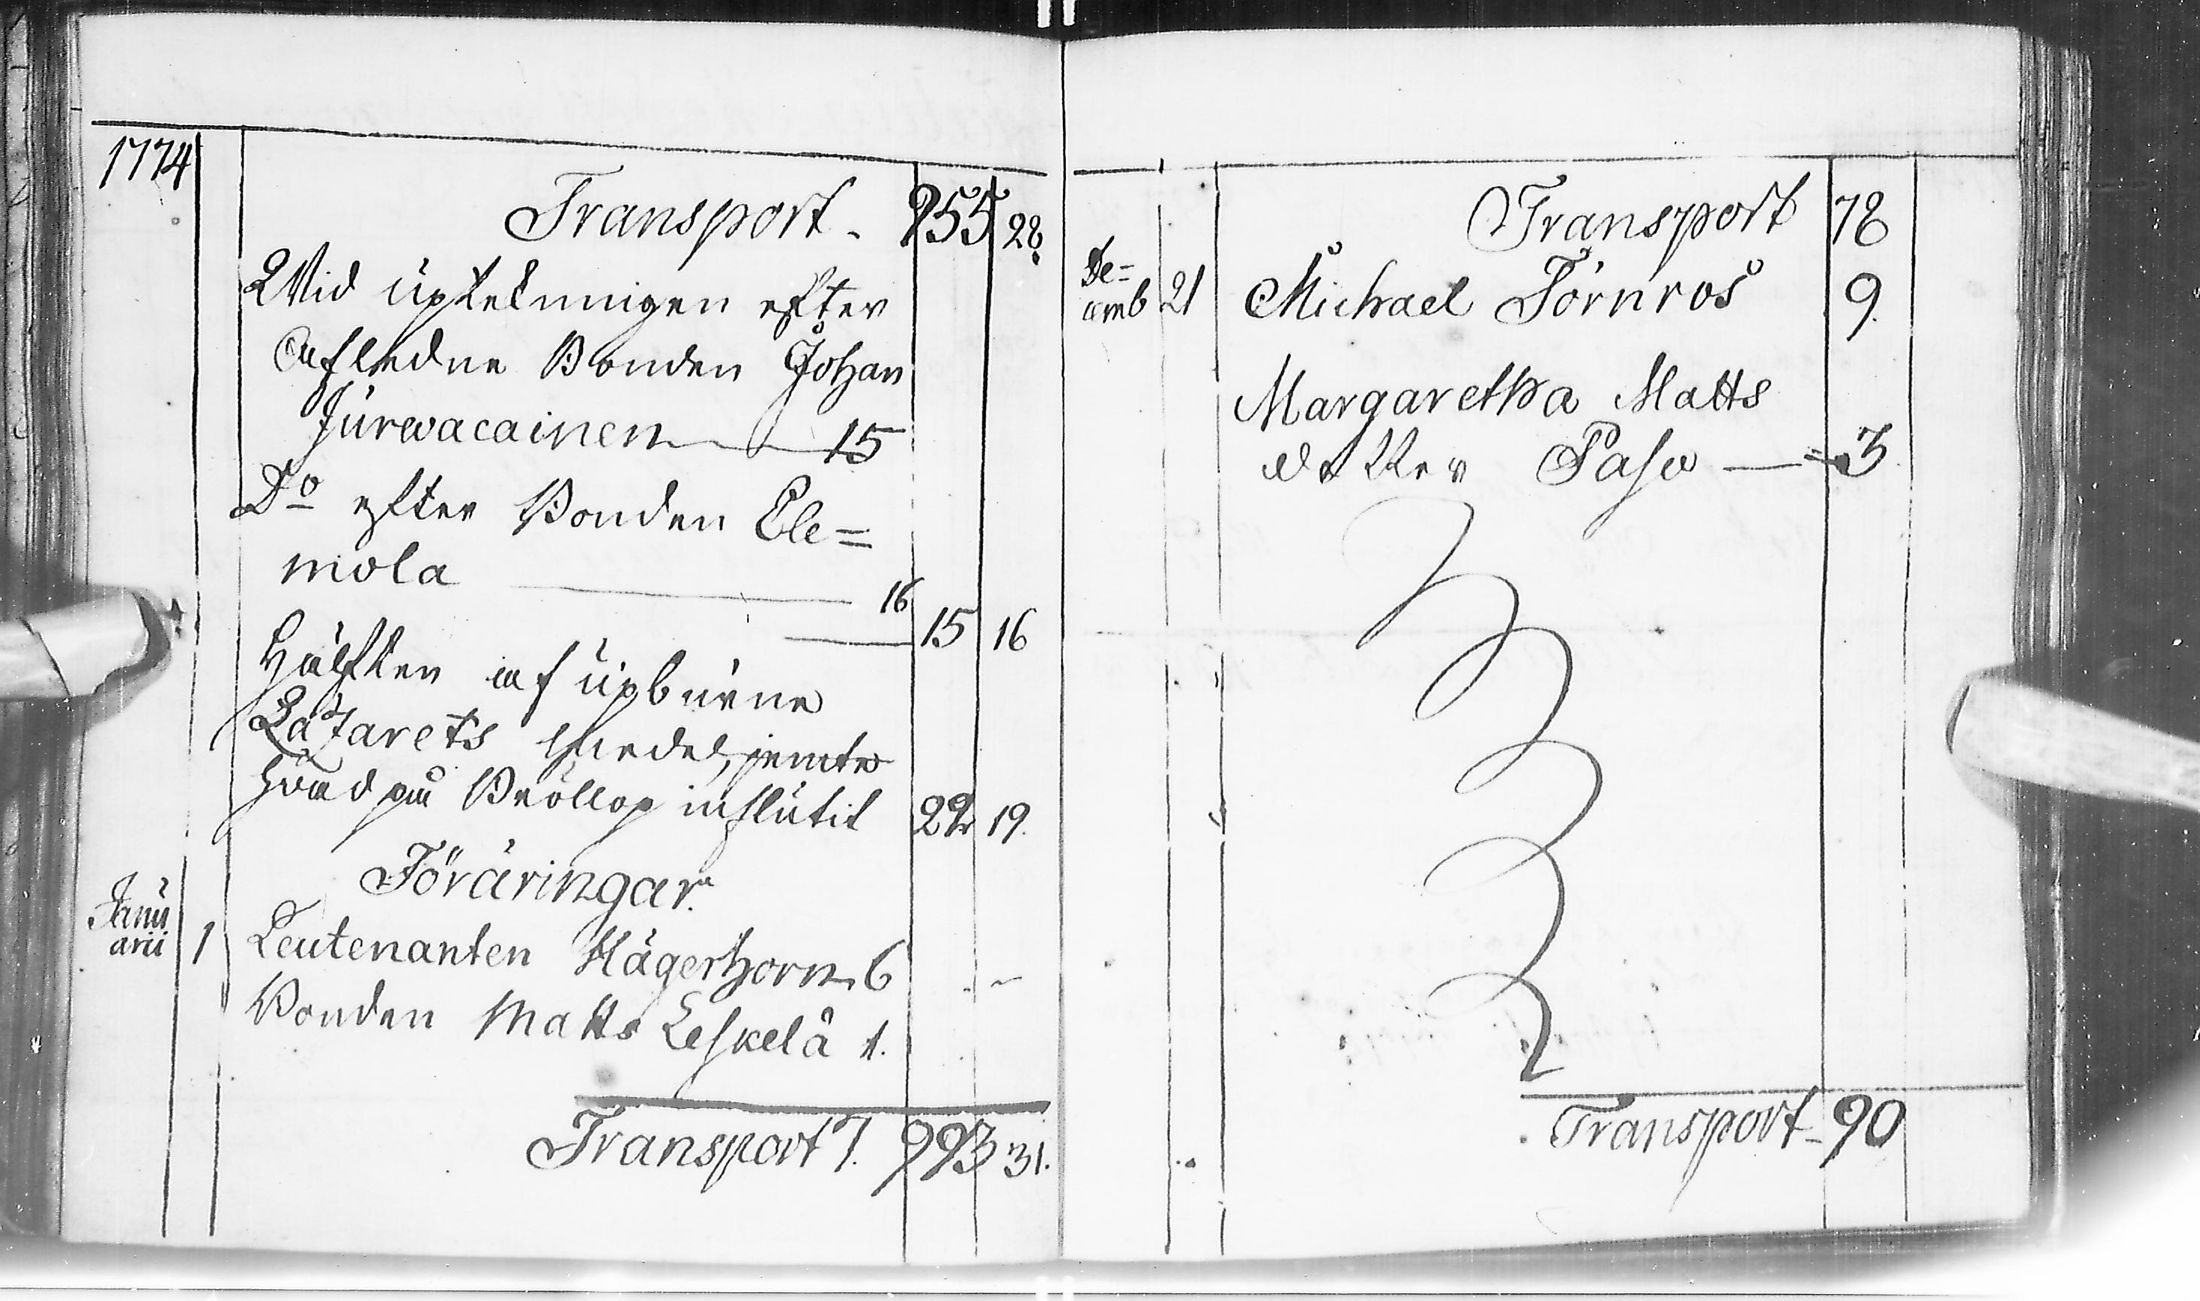 1774
Transport - 955 28.
Wid uptekningen efter
Aflidne Bonden Johan
Jurwacainen — 15
Do efter Bonden Ele=
mola — 16
15 16
Hälften af upburne
Lazarets medel, jemte
hvad på Bröllop influtit 22 19.
Föräringar.
Janu
arii 1 Leutenanten Hägerhorn 6 - -
Bonden Matts Leskelä 1.
Transport 7. 993 31.
Transport 78
De=
cemb 21 Michael Törnros 9.
Margaretha Matts
dotter Paso — 3
Transport - 90